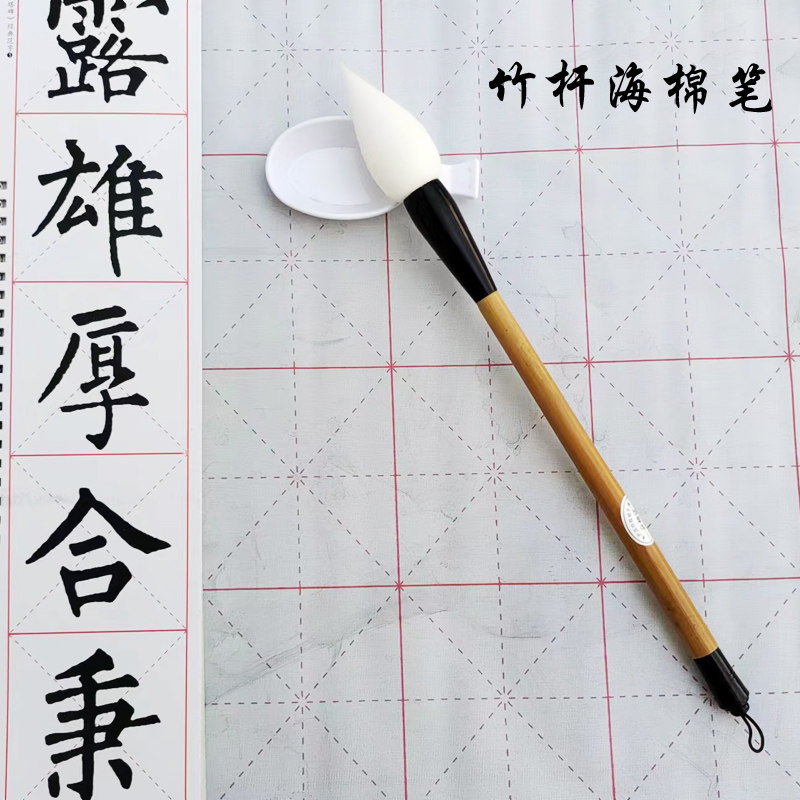 竹杆海棉笔
露
雄
厚
合
秉